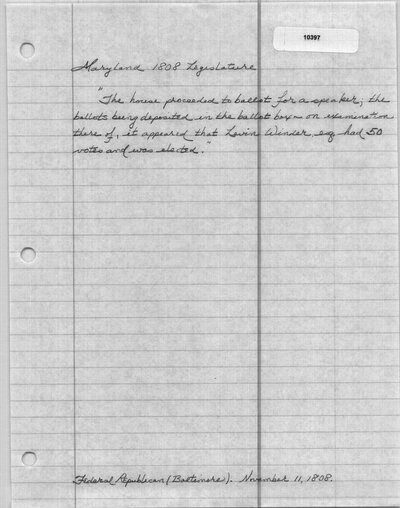 10397
Maryland 1808 Legislature
"The house proceeded to ballot for a speaker; the
ballots being deposited in the ballot box – on examination
there of, it appeared that Levin Winder esq had 50
votes and was elected."
Federal Republican (Baltimore). November 11, 1808.